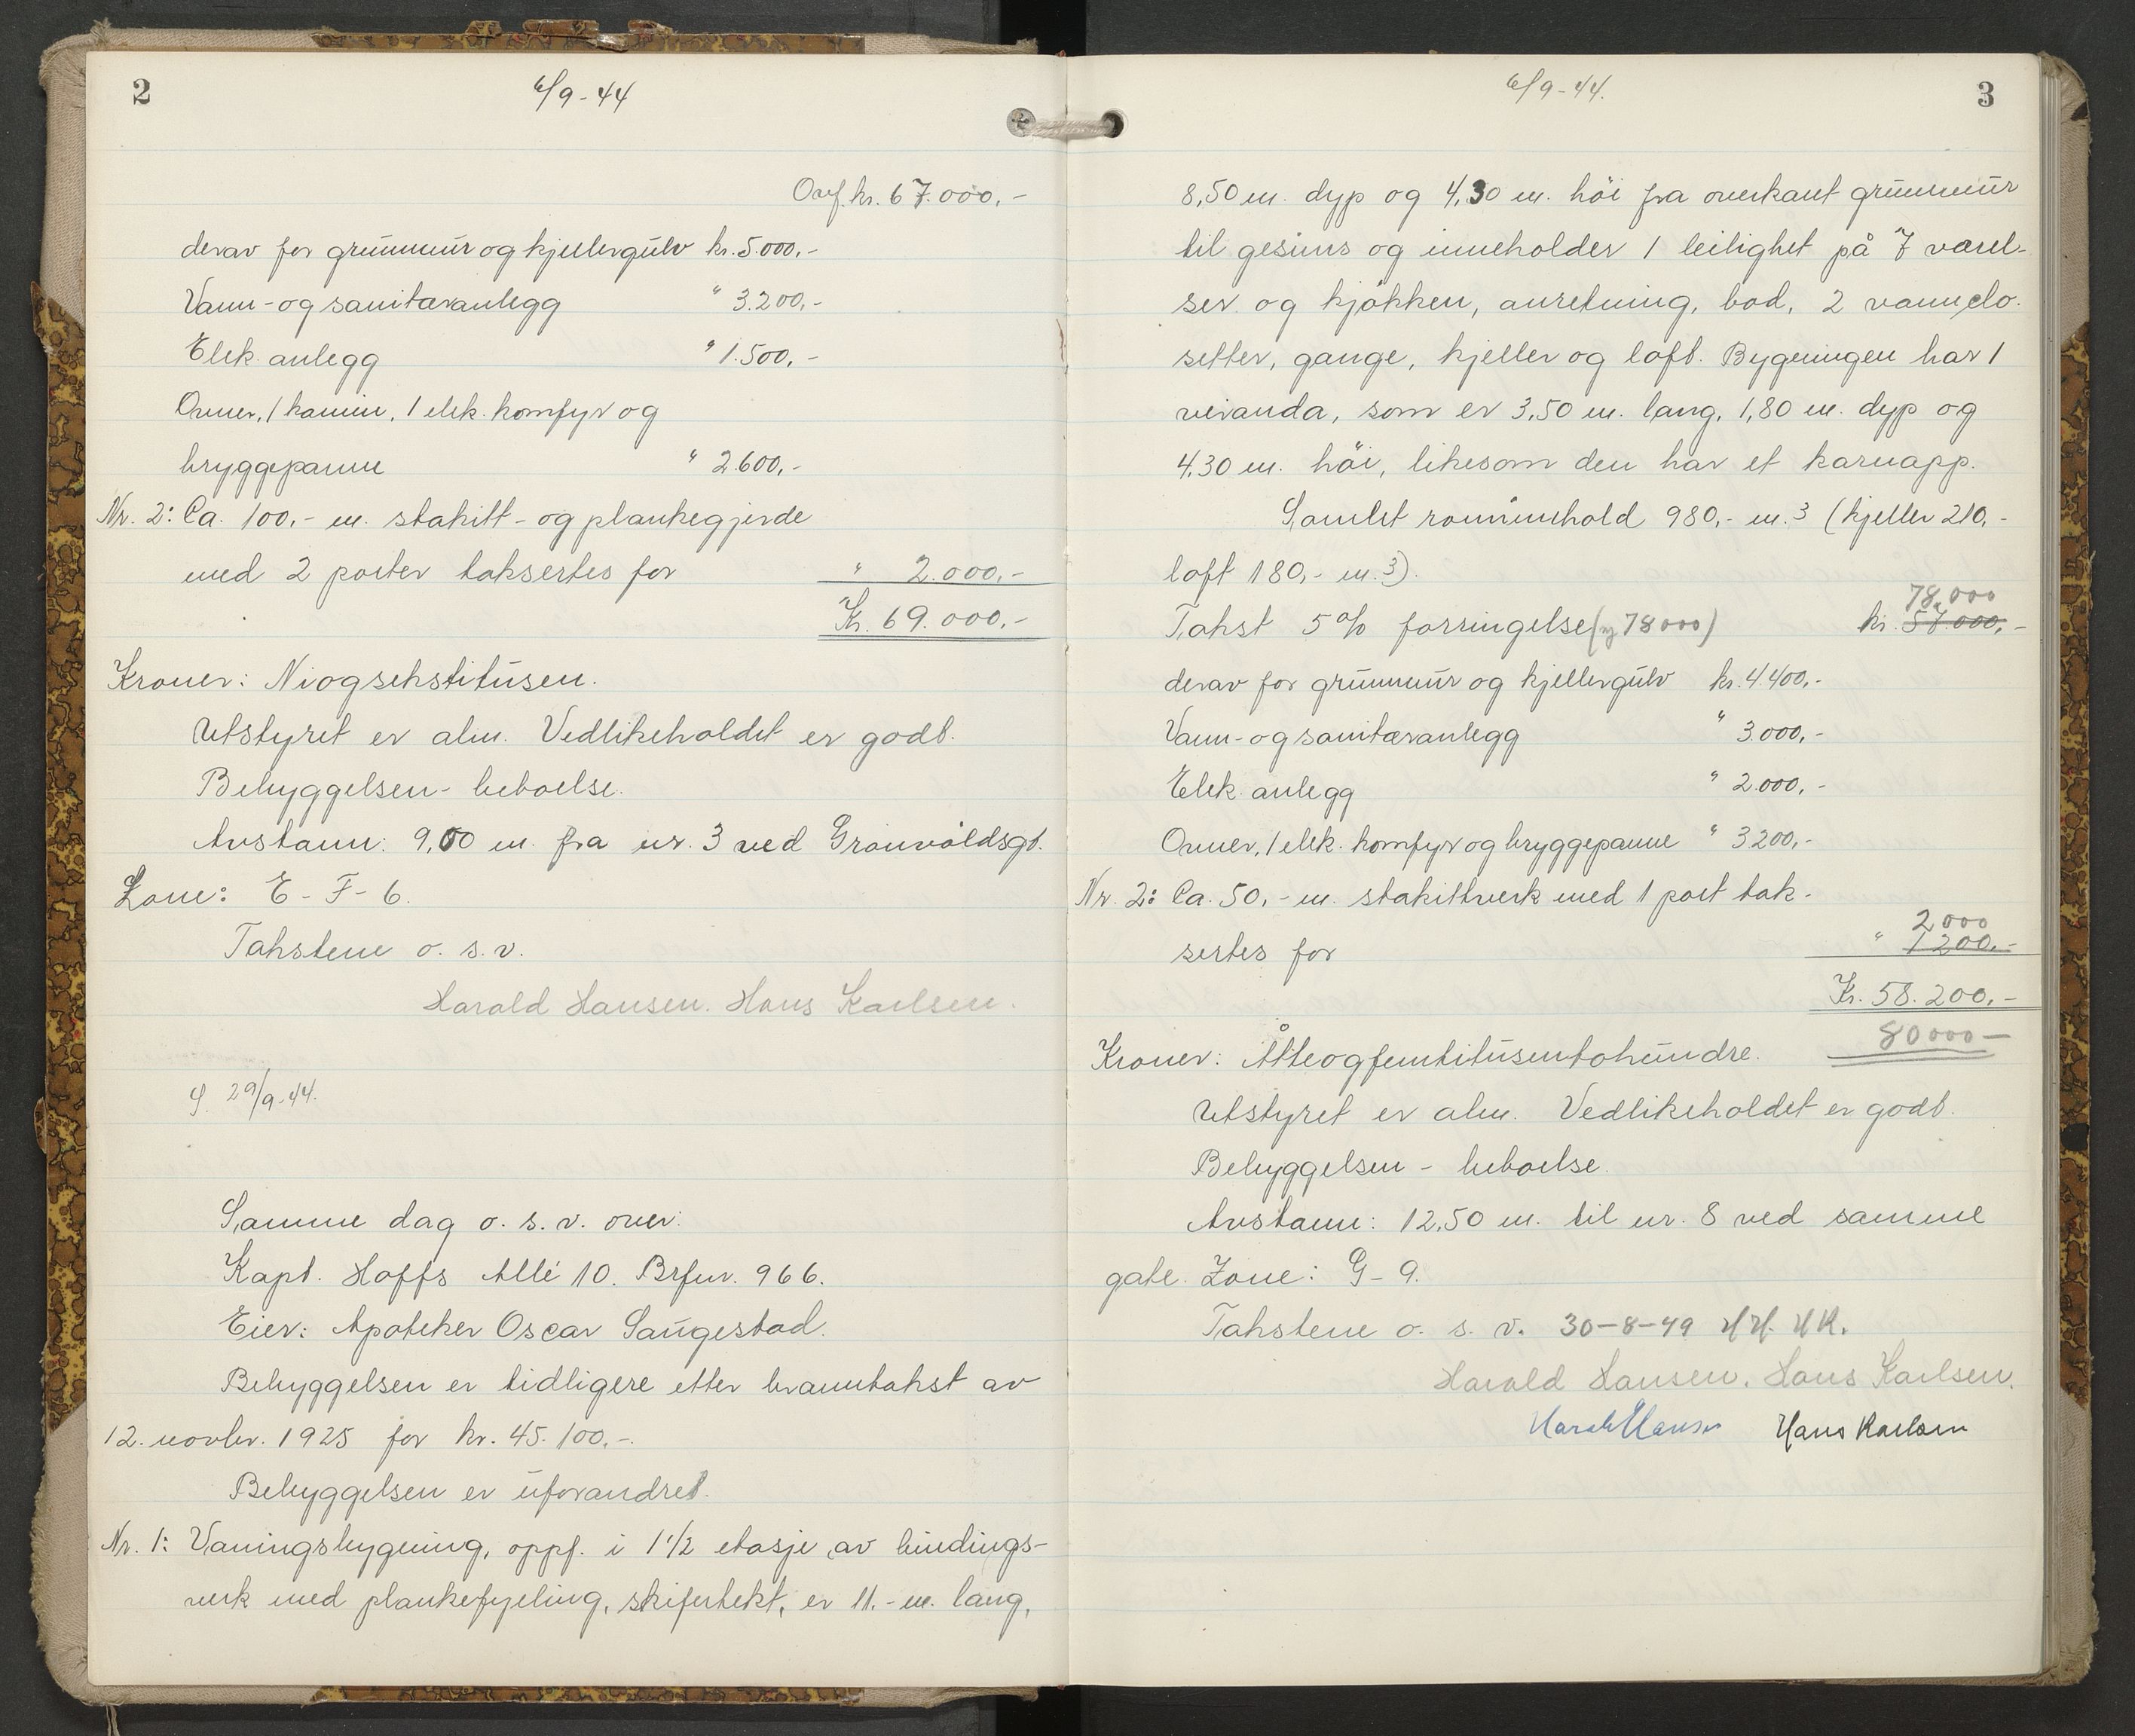 2
6/9-44
Ovf. kr. 67.000,-
derav for grunnmur og kjellergulv kr. 5.000,-
Vann- og sanitæranlegg " 3.200,-
Elek. anlegg " 1.500,-
Ovner, 1 kamin, 1 elek. komfyr og
bryggepanne " 2.600,-
Nr. 2: Ca. 100,- m. stakitt- og plankegjerde
med 2 porter taksertes for " 2.000,-
Kr. 69.000,-
Kroner: Niogsekstitusen.
Utstyret er alm. Vedlikeholdet er godt.
Bebyggelsen - beboelse.
Avstann: 9,00 m. fra nr. 3 ved Grønvoldsgt.
Zone: E-F-6.
Takstene o. s. v.
Harald Hansen. Hans Karlsen.
S. 29/9-44.
Samme dag o. s. v. over:
Kapt. Hoffs Allé 10. Brfnr. 966.
Eier: Apoteker Oscar Saugestad.
Bebyggelsen er tidligere etter branntakst av
12. novbr. 1925 for kr. 45.100,-.
Bebyggelsen er uforandret.
Nr. 1: Vaningsbygning, oppf. i 1 1/2 etasje av bindings-
verk med plankefyeling, skifertekt, er 11.- m. lang,
6/9-44.
3
8,50 m. dyp og 4,30 m. höi fra overkant grunnmur
til gesims og inneholder 1 leilighet på 7 varel-
ser og kjøkken, anretning, bod, 2 vannclo-
setter, gange, kjeller og loft. Bygningen har 1
veranda, som er 3,50 m. lang, 1,80 m. dyp og
4,30 m. höi, likesom den har et karnapp.
Samlet rominnhold 980,- m.3 (kjeller 210,-
loft 180,- m.3).
78.000
Takst 5% forringelse (ny 78000) kr. 57.000,-
derav for grunnmur og kjellergulv kr. 4.400,-
Vann- og sanitæranlegg " 3.000,-
Elek. anlegg " 2.000,-
Ovner, 1 elek. komfyr og bryggepanne " 3.200,-
Nr. 2: Ca. 50,- m. stakittverk med 1 port tak-
2.000
sertes for " 1.200,-
Kr. 58.200,-
80000-
Kroner: Åtteogfemtitusentohundre.
Utstyret er alm. Vedlikeholdet er godt.
Bebyggelsen - beboelse.
Avstann: 12,50 m. til nr. 8 ved samme
gate. Zone: G-9.
Takstene o. s. v. 30-8-49 HH. HK.
Harald Hansen. Hans Karlsen.
Harald Hansen Hans Karlsen